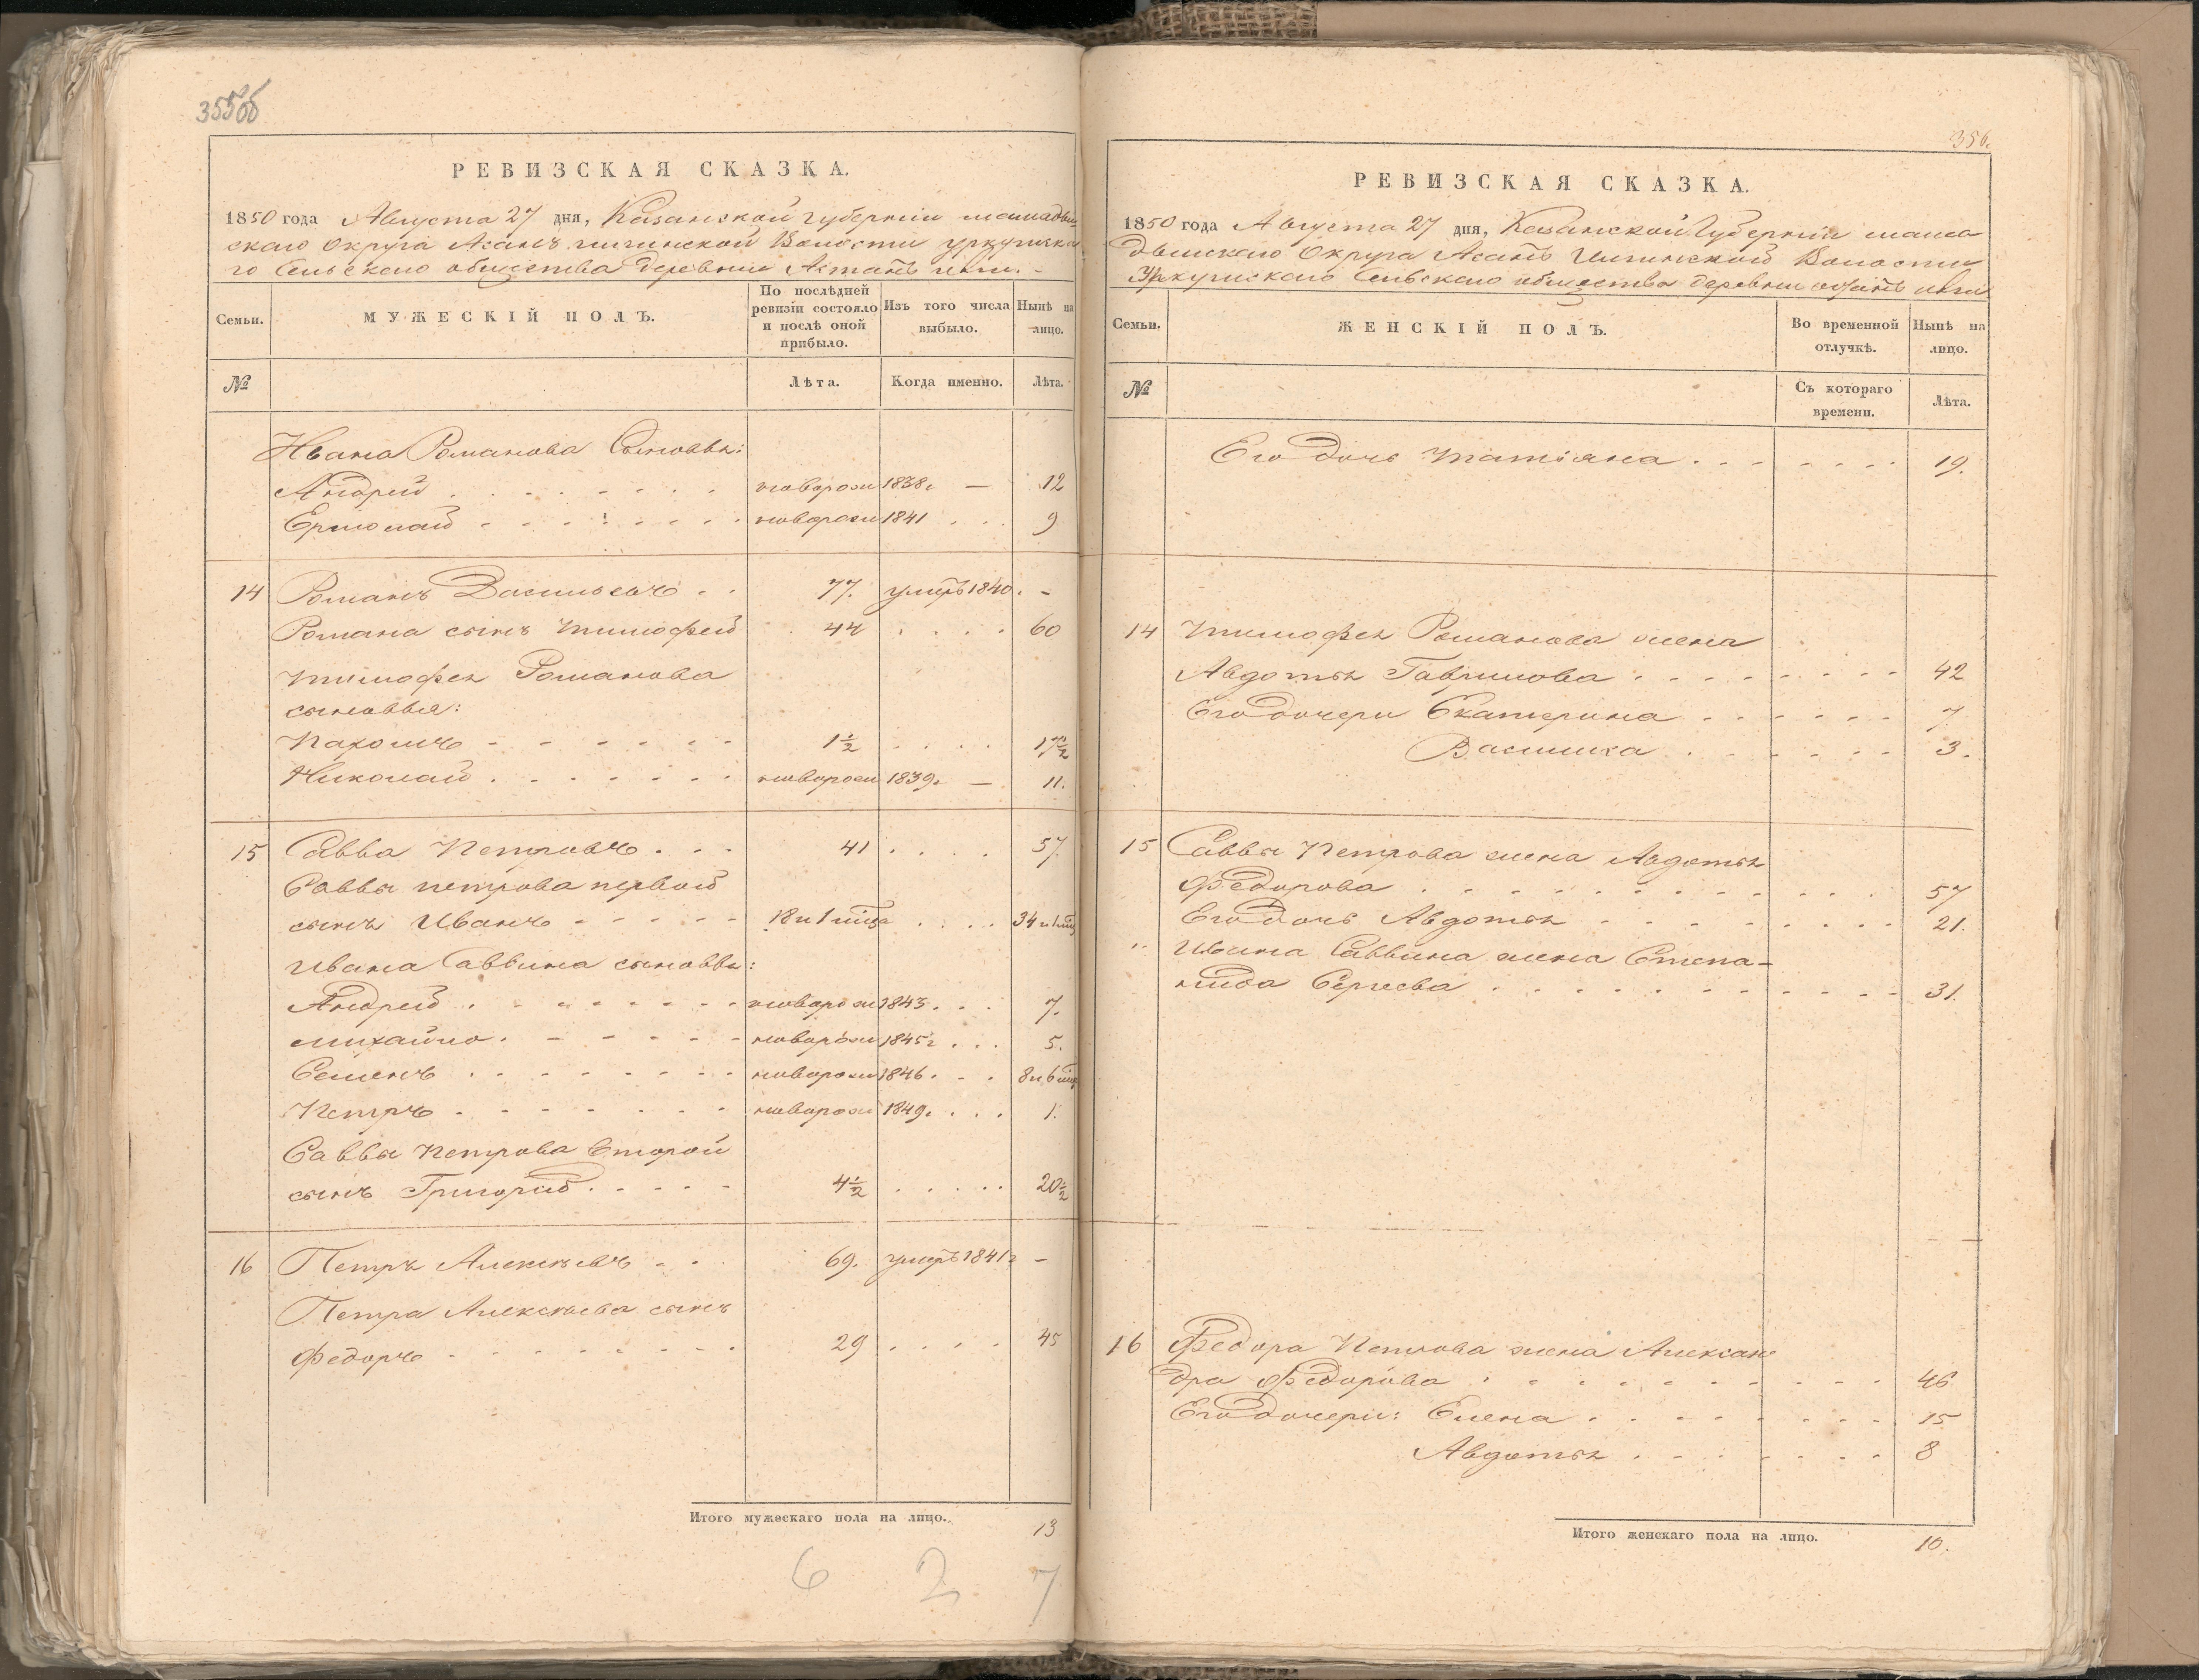 355об
РЕВИЗСКАЯ СКАЗКА.
1850 года Августа 27 дня, Казанской губернiи мамады-
скаго Округа Асанъ илгинской Волости уркушска-
го Сельскаго общества деревни
Семьи. МУЖЕСКIЙ ПОЛЪ. По послѣдней ревизiи состояло и послѣ оной прибыло. Изъ того числа выбыло. Нынѣ на лицо.
№ Лѣта. Когда именно. Лѣта.
Ивана Романова Сыновья:
Андрей новорож 1838г — 12
Ермолай новорож 1841 9
14 Романъ Васильевъ 77. умеръ 1840. -
Романа сынъ Тимофей 44 60
Тимофея Романова
сыновья:
Пахомъ 1½ 17½
Николай новорож 1839г — 11.
15 Савва Петровъ 41 57.
Саввы петрова первой
сынъ Иванъ 18 и 1 мѣца 34 и 1 мц
Ивана Саввина сыновья:
Андрей новорож 1843. 7.
михайло новорож 1845г 5.
Семенъ новорож 1846. 8 и 6 мц
Петръ новорож 1849. 1.
Саввы Петрова второй
сынъ Григорей 4½ 20½
16 Петръ Алексѣевъ 69. умеръ 1841г -
Петра Алексѣева сынъ
Федоръ 29 45
Итого мужескаго пола на лицо. 13
6 2 7
356.
РЕВИЗСКАЯ СКАЗКА.
1850 года Августа 27 дня, Казанской Губернiи мама
дышскаго Округа Асанъ Илгинской Волости
Уркушскаго Сельскаго общества деревни
Семьи. ЖЕНСКIЙ ПОЛЪ. Во временной отлучкѣ. Нынѣ на лицо.
№ Съ котораго времени. Лѣта.
Его дочь Татiяна 19.
14 Тимофея Романова жена
Авдотья Гаврилова 42
Его дочери Екатерина 7.
Василиса 3.
15 Саввы Петрова жена Авдотья
Федорова 57
Его дочь Авдотья 21.
" Ивана Саввина жена Степа-
нида Сергеева 31.
16 Федора Петрова жена Алексан
дра Федорова 46
Его дочери: Елена 15
Авдотья 8
Итого женскаго пола на лицо. 10.